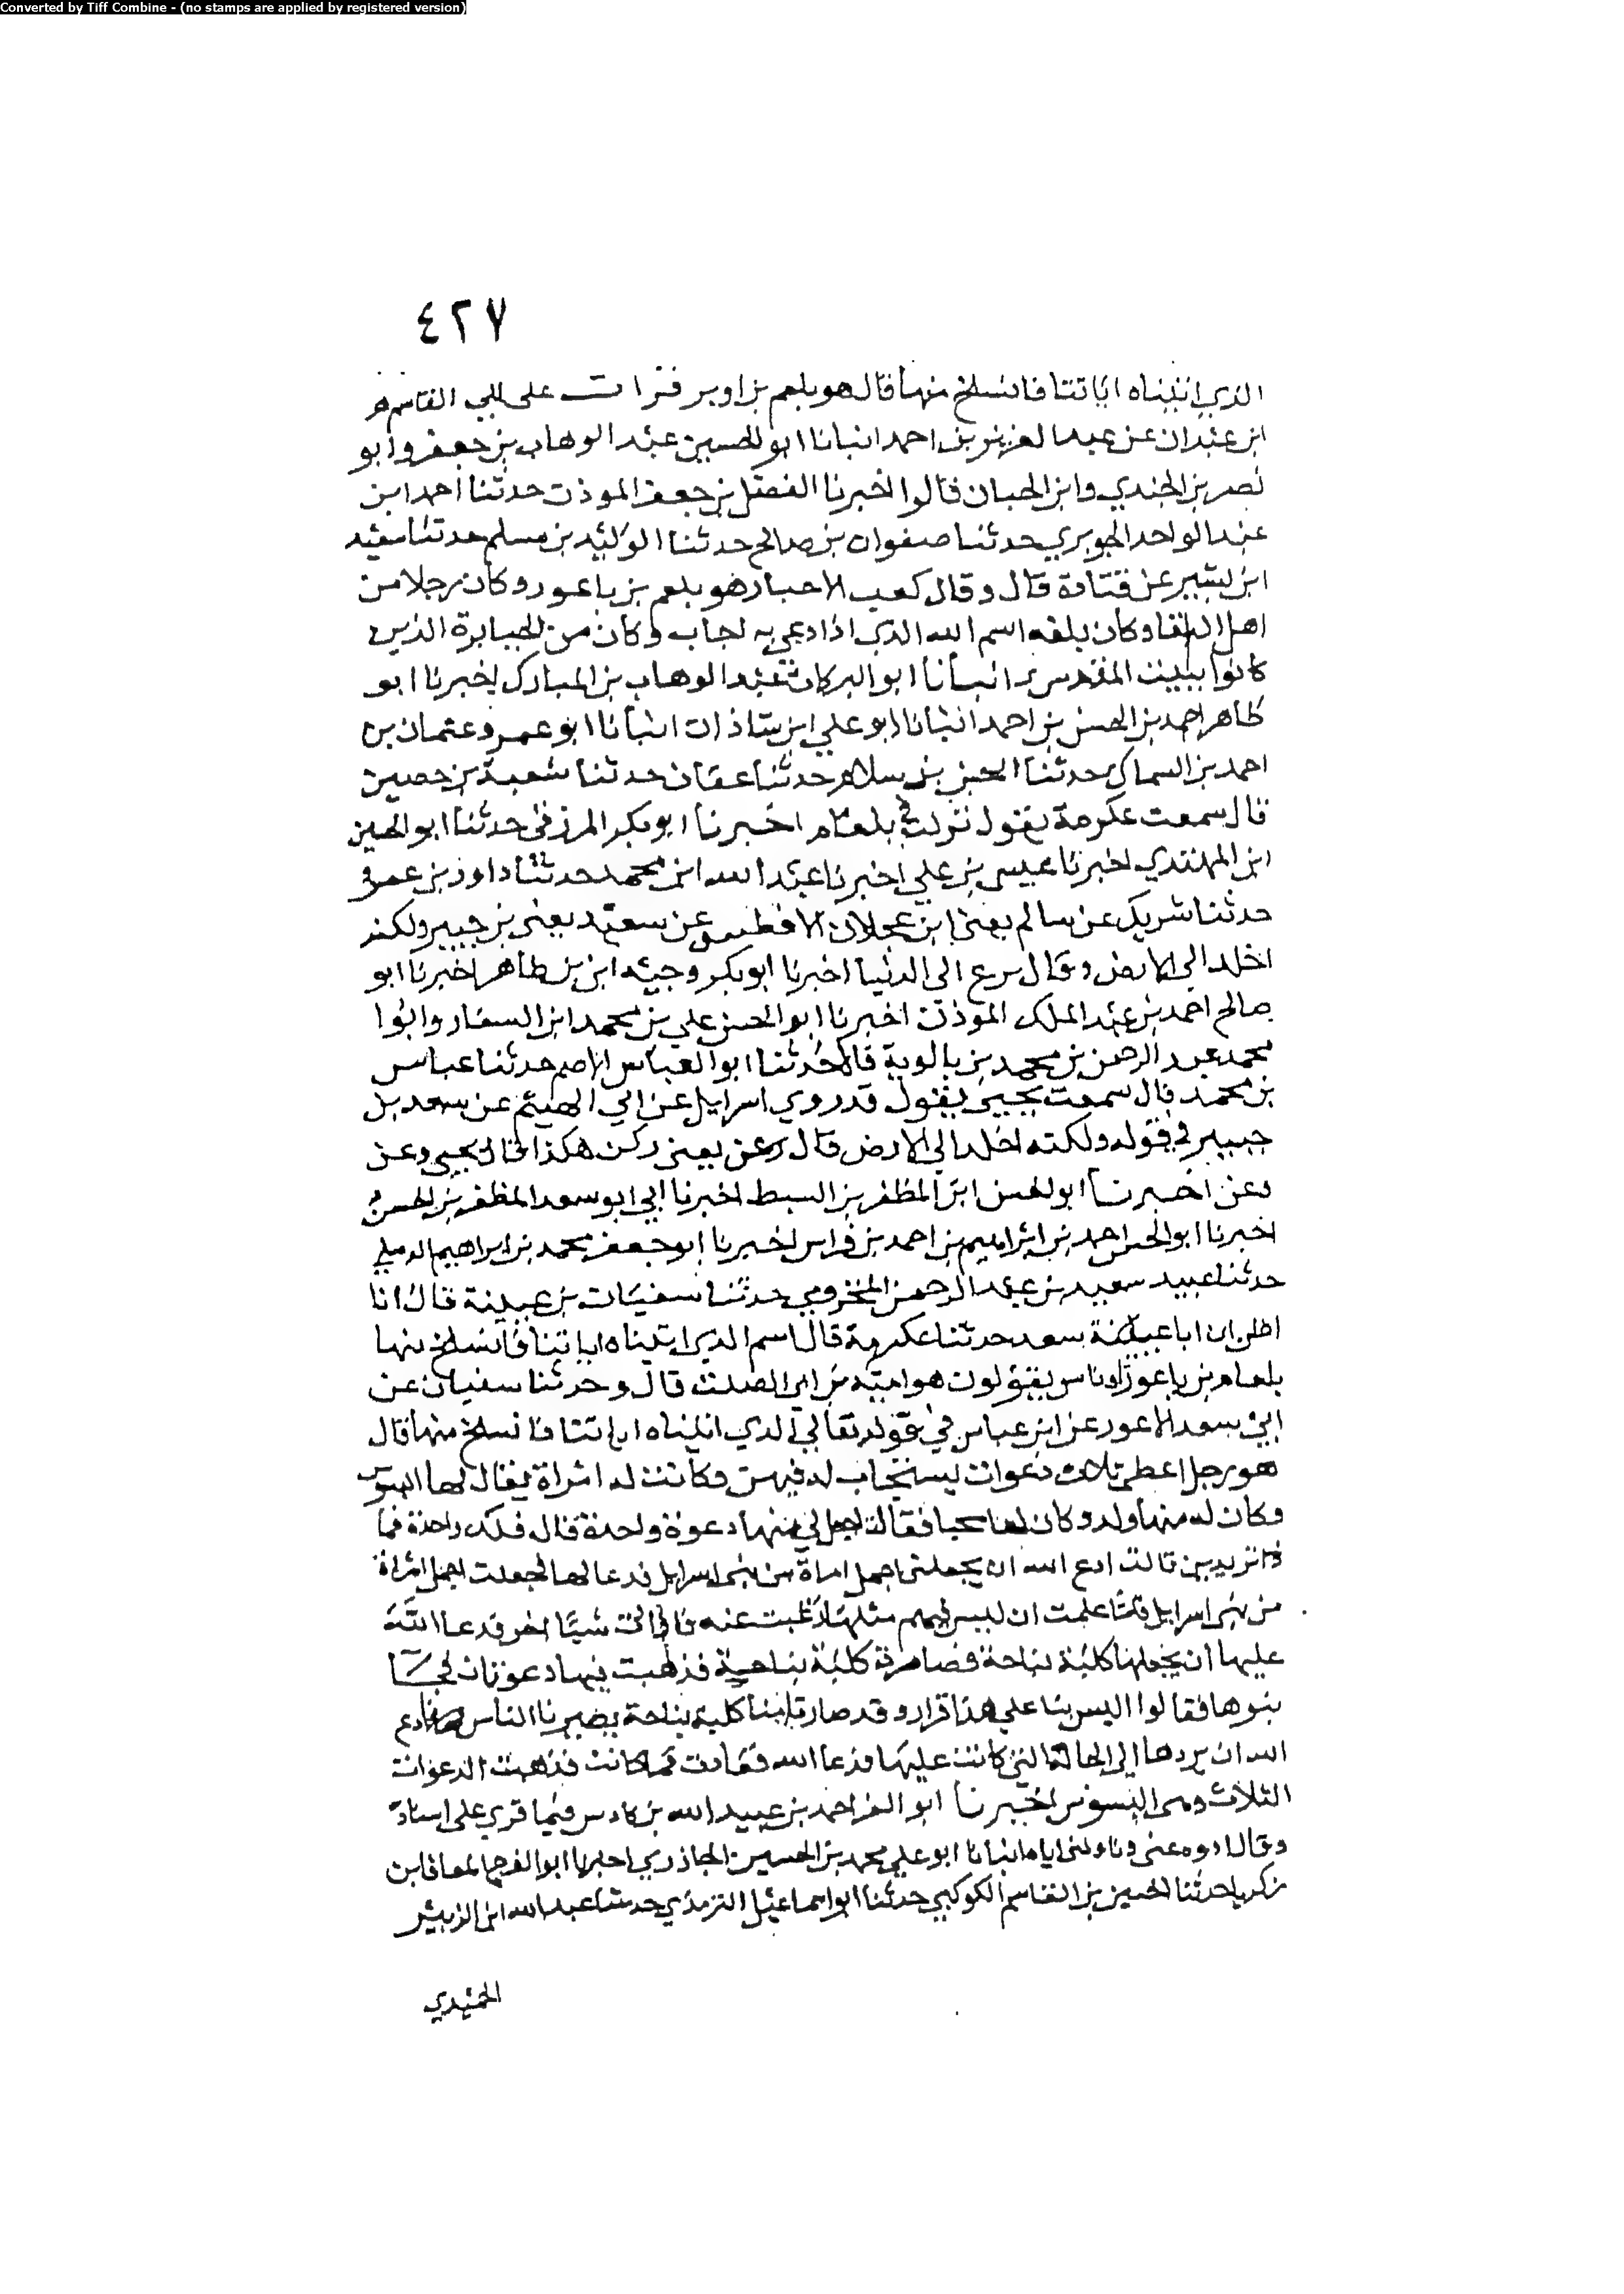 Converted by Tiff Combine - (no stamps are applied by registered version)
٤٢٧
الذي اتيناه اياتنا فانسلخ منها قال هو بلعم بن اوبر قرات على ابي القاسم
ابن عبدان عن عبد العزيز بن احمد انبانا ابو الحسين عبد الوهاب بن جعفر وابو
نصر بن الجندي وابن الجبان قالوا اخبرنا الفضل بن جعفر الموذن حدثنا احمد ابن
عبد الواحد الجوبري حدثنا صفوان بن صالح حدثنا الوليد بن مسلم حدثنا سعيد
ابن بشير عن قتادة قال وقال كعب الاحبار هو بلعم بن باعور وكان رجلا من
اهل البلقا وكان بلغه اسم الله الذي اذا دعي به اجاب وكان من الجبابرة الذين
كانوا ببيت المقدس انبانا ابو البركات عبد الوهاب بن المبارك اخبرنا ابو
طاهر احمد بن الحسن بن احمد انبانا ابو علي ابن شاذان انبانا ابو عمرو عثمان بن
احمد بن السماك حدثنا الحسن بن سلام حدثنا عفان حدثنا شعبة بن حصين
قال سمعت عكرمة يقول نزلت في بلعام اخبرنا ابو بكر المرزفي حدثنا ابو الحسين
ابن المهتدي اخبرنا عيسى بن علي اخبرنا عبد الله ابن محمد حدثنا داود بن عمرو
حدثنا شريك عن سالم يعني ابن عجلان الافطس عن سعيد يعني بن جبير ولكنه
اخلد الى الارض وقال نزع الى الدنيا اخبرنا ابو بكر وجيه ابن بن طاهر اخبرنا ابو
صالح احمد بن عبد الملك الموذن اخبرنا ابو الحسن علي بن محمد ابن السقا وابوا
محمد عبد الرحمن بن محمد بن بالوية قالا حدثنا ابو العباس الاصم حدثنا عباس
بن محمد قال سمعت يحيى يقول قد روي اسرايل عن ابي الهيثم عن سعد بل
جبير في قوله ولكنه اخلد الى الارض قال ركن يعني ركن هكذا قال يحيى وعن
وعن اخبرنا ابو الحسن ابن المظفر بن السبط اخبرنا ابي ابو سعد المظفر بن الحسن
اخبرنا ابو الحسن احمد بن ابراهيم بن احمد بن فراس اخبرنا ابو جعفر محمد بن ابراهيم الديبلي
حدثنا عبيد سعيد بن عبد الرحمن المخزومي حدثنا سفيان بن عيينة قال انا
اظن ان ابا عيينة سعد حدثنا عكرمة قال اسم الذي اتيناه اياتنا فانسلخ منها
بلعام بن باعوزا وناس يقولون هو امية بن ابي الصلت قال وحدثنا سفيان عن
ابي سعد الاعور عن ابن عباس في قوله تعالى الذي اتيناه اياتنا فانسلخ منها قال
هو رجل اعطى ثلاث دعوات يستجاب له فيهن وكانت له امراة يقال لها البسوس
وكان له منها ولد وكان لها محبا فقالت اجعل لي منها دعوة واحدة قال فلك واحدة فما
ذا تريدين قالت ادع الله ان يجعلني اجمل امراة من بني اسرايل فدعا لها فجعلت اجمل امراة
من بني اسرايل فلما علمت ان ليس فيهم مثلها رغبت عنه فارادت شيئا اخر فدعا الله
عليها ان يجعلها كلبة نباحة فصارت كلبة نباحة فذهبت فيها دعوتان فجا
بنوها فقالوا اليس بنا على هذا قرار وقد صارت امنا كلبة نباحة يعيرنا الناس بها فادع
الله ان يردها الى الحالة التي كانت عليها فدعا الله فعادت كما كانت فذهبت الدعوات
الثلاث وهي البسوس اخبرنا ابو العز احمد بن عبيد الله بن كادس فيما قري على اسناده
وقال اروه عني وناولني اياه انبانا ابو علي محمد بن الحسين الجازري اخبرنا ابو الفرج المعافا بن
زكريا حدثنا الحسين بن القاسم الكوكبي حدثنا ابو اسماعيل الترمذي حدثنا عبد الله ابن الزبير
الحميدي